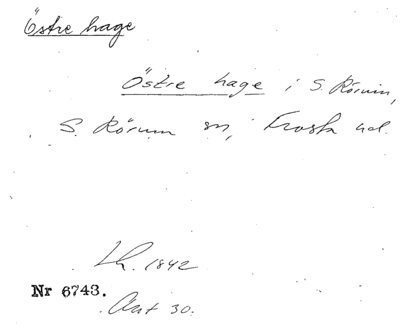 Östre hage
Östre hage i S. Rörum,
S. Rörum sn, Frosta hd.
Lh. 1842
Nr 6743.
Akt 30.